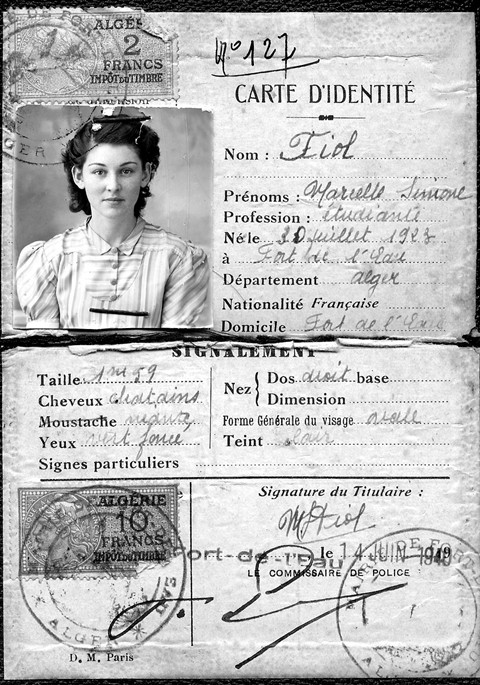 ALGÉRIE
2
FRANCS
IMPÔT DU TIMBRE
N° 127
CARTE D'IDENTITÉ
Nom : Fiol
Prénoms : Marcelle Simone
Profession : étudiante
Né le 20 juillet 1923
à Fort de l'Eau
Département alger
Nationalité Française
Domicile Fort de l'Eau
SIGNALEMENT
Taille 1m59
Cheveux chatains
Moustache néant
Yeux vert foncé
Nez { Dos droit base
Dimension
Forme Générale du visage ovale
Teint clair
Signes particuliers
ALGÉRIE
10
FRANCS
IMPÔT DU TIMBRE
ALGER
Signature du Titulaire :
MFiol
Fort-de-l'Eau le 14 JUIN 1940
LE COMMISSAIRE DE POLICE
D. M. Paris